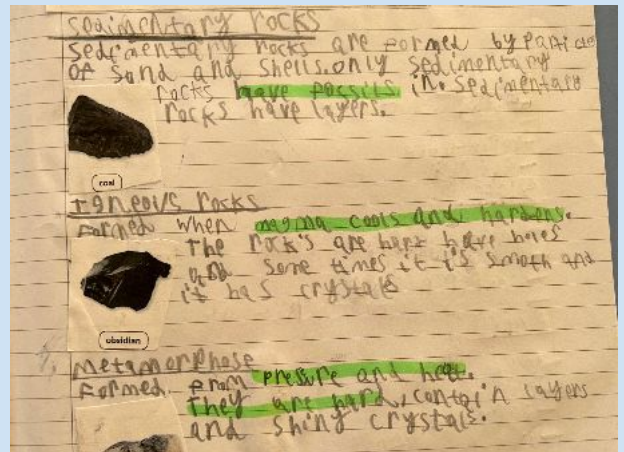 sedimentary rocks
sedimentary rocks are formed by particles
of sand and shells. only sedimentary
rocks have fossils in. sedimentary
rocks have layers.
coal
Igneous rocks
Formed when magma cools and hardens.
The rock's are have holes
and some times it is smooth and
it has crystals
obsidian
metamorphose
Formed from pressure and heat.
They are hard, contain layers
and shiny crystals.